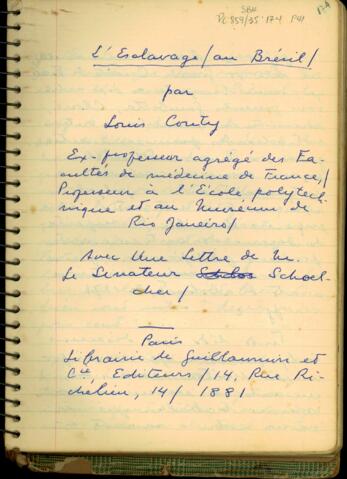 SBH
Pi 859/35 174 P41
174
L'Esclavage / au Brésil /
par
Louis Couty
Ex-professeur agrégé des Fa-
cultés de médecine de France, /
Professeur à l'École polytech-
nique et au Muséum de
Rio Janeiro /
Avec Une Lettre de M.
Le Senateur Schoel-
cher /
Paris
Librairie de Guillaumin et
Cie, Editeurs / 14, Rue Ri-
chelieu, 14 / 1881